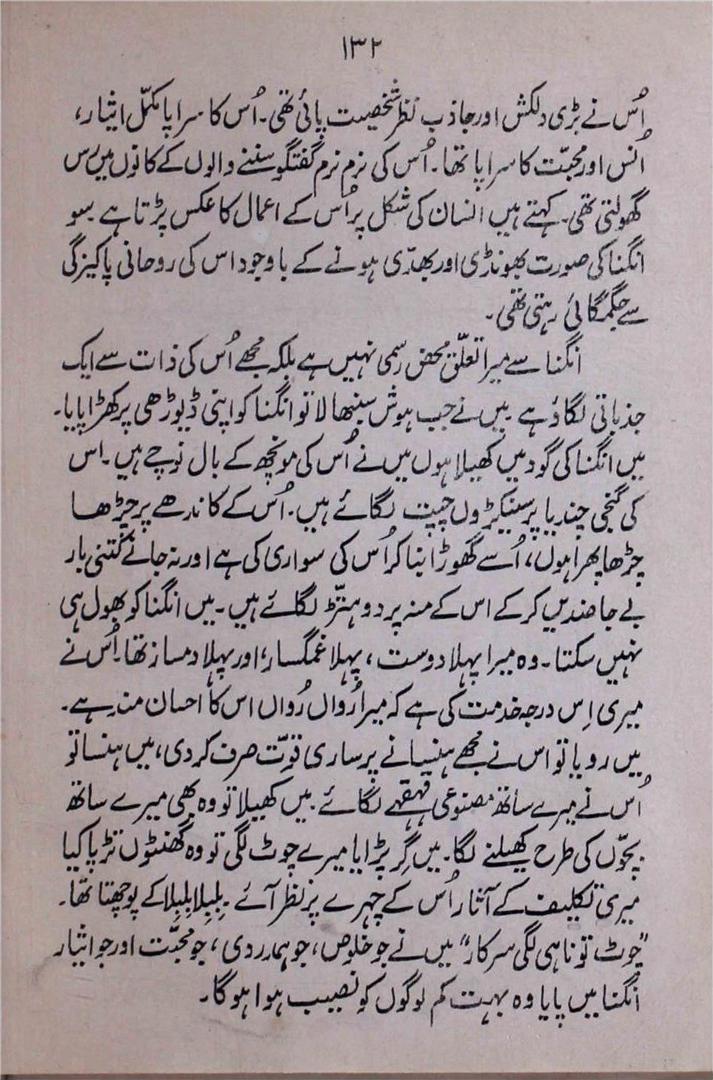 ۱۳۲
اُس نے بڑی دلکش اور جاذب نظر شخصیت پائی تھی۔ اُس کا سراپا مکمّل ایثار،
اُنس اور محبّت کا سراپا تھا۔ اُس کی نرم نرم گفتگو سننے والوں کے کانوں میں رس
گھولتی تھی۔ کہتے ہیں انسان کی شکل پر اُس کے اعمال کا عکس پڑتا ہے سو
انگنا کی صورت بھونڈی اور بھدّی ہونے کے باوجود اس کی روحانی پاکیزگی
سے جگمگائی رہتی تھی۔
انگنا سے میرا تعلّق محض رسمی نہیں ہے بلکہ مجھے اُس کی ذات سے ایک
جذباتی لگاؤ ہے۔ میں نے جب ہوش سنبھالا تو انگنا کو اپنی ڈیوڑھی پر کھڑا پایا۔
میں انگنا کی گود میں کھیلا ہوں میں نے اُس کی مونچھ کے بال نوچے ہیں۔ اس
کی گنجی چندیا پر سینکڑوں چپت لگائے ہیں۔ اُس کے کاندھے پر چڑھا
چڑھا پھرا ہوں، اُسے گھوڑا بنا کر اُس کی سواری کی ہے اور نہ جانے کتنی بار
بے جا ضدیں کر کے اس کے منہ پر دو ہتّڑ لگائے ہیں۔ میں انگنا کو بھول ہی
نہیں سکتا۔ وہ میرا پہلا دوست، پہلا غمگسار، اور پہلا دمساز تھا۔ اُس نے
میری اِس درجہ خدمت کی ہے کہ میرا رُواں رُواں اس کا احسان مند ہے۔
میں رویا تو اس نے مجھے ہنسانے پر ساری قوّت صرف کر دی، میں ہنسا تو
اُس نے میرے ساتھ مصنوعی قہقہے لگائے۔ میں کھیلا تو وہ بھی میرے ساتھ
بچّوں کی طرح کھیلنے لگا۔ میں گِر پڑا یا میرے چوٹ لگی تو وہ گھنٹوں تڑپا کیا
میری تکلیف کے آثار اُس کے چہرے پر نظر آئے۔ بِلبِلا بِلبِلا کے پوچھتا تھا۔
"چوٹ تو ناہی لگی سرکار" میں نے جو خلوص، جو ہمدردی، جو محبّت اور جو ایثار
انگنا میں پایا وہ بہت کم لوگوں کو نصیب ہوا ہوگا۔